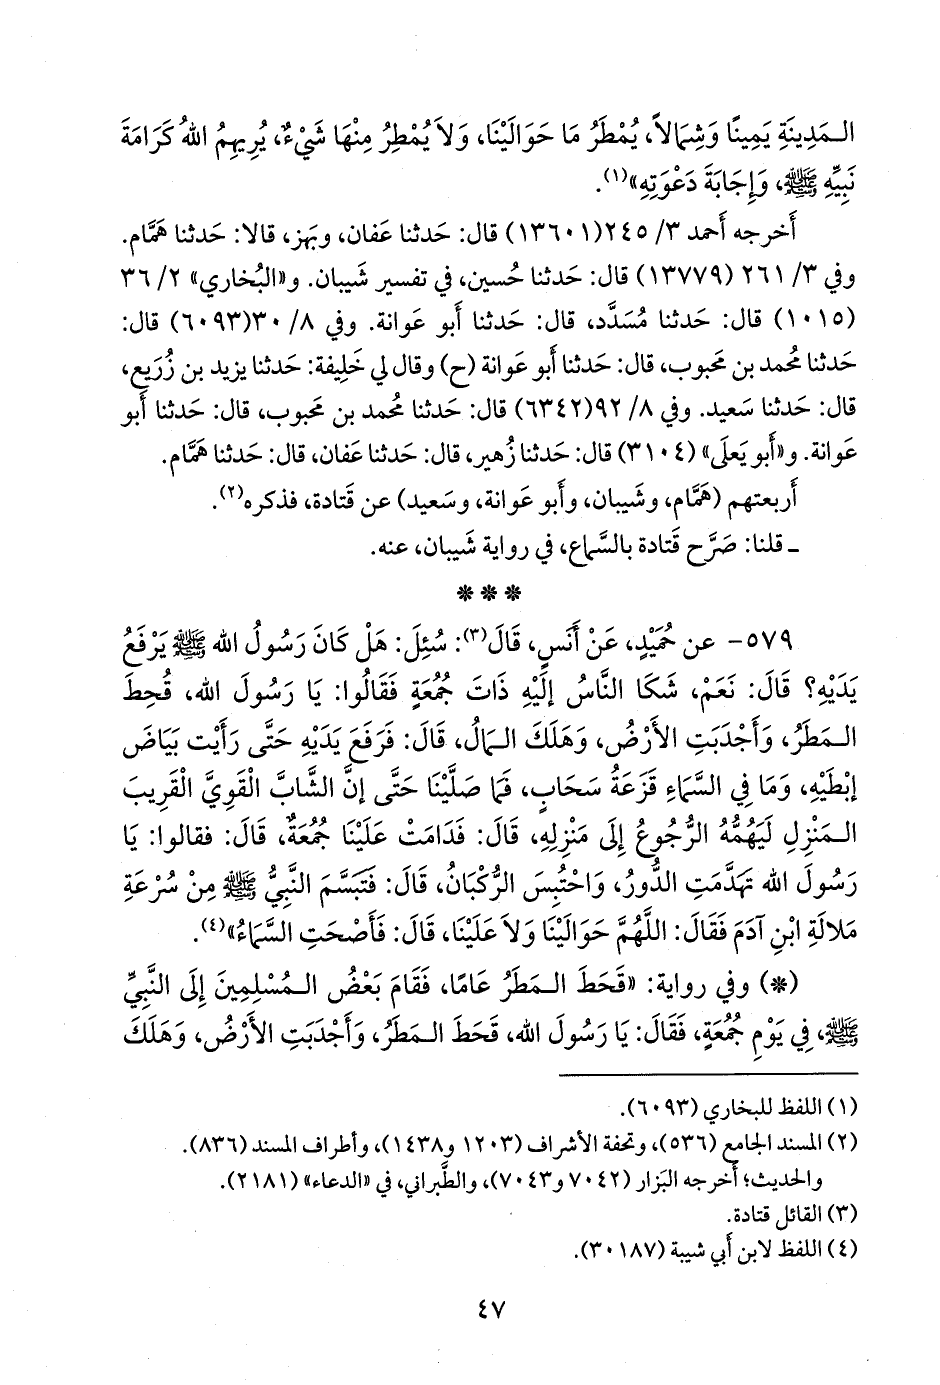 الـمَدِينَةِ يَمِينًا وَشِمَالاً، يُمْطَرُ مَا حَوَالَيْنَا، وَلاَ يُمْطِرُ مِنْهَا شَيْءٌ، يُرِيهِمُ اللهُ كَرَامَةَ
نَبِيِّهِ ﷺ، وَإِجَابَةَ دَعْوَتِهِ»(١).
أَخرجه أَحمد ٣/ ٢٤٥(١٣٦٠١) قال: حَدثنا عَفان، وبَهز، قالا: حَدثنا هَمَّام.
وفي ٣/ ٢٦١ (١٣٧٧٩) قال: حَدثنا حُسين، في تفسير شَيبان. و«البُخاري» ٢/ ٣٦
(١٠١٥) قال: حَدثنا مُسَدَّد، قال: حَدثنا أَبو عَوانة. وفي ٨/ ٣٠(٦٠٩٣) قال:
حَدثنا مُحمد بن مَحبوب، قال: حَدثنا أَبو عَوانة (ح) وقال لي خَلِيفة: حَدثنا يزيد بن زُرَيع،
قال: حَدثنا سَعيد. وفي ٨/ ٩٢(٦٣٤٢) قال: حَدثنا مُحمد بن مَحبوب، قال: حَدثنا أَبو
عَوانة. و«أَبو يَعلَى» (٣١٠٤) قال: حَدثنا زُهير، قال: حَدثنا عَفان، قال: حَدثنا هَمَّام.
أَربعتهم (هَمَّام، وشَيبان، وأَبو عَوانة، وسَعيد) عن قَتادة، فذكره(٢).
ـ قلنا: صَرَّح قَتادة بالسَّماع، في رواية شَيبان، عنه.
* * *
٥٧٩- عن حُمَيْدٍ، عَنْ أَنَسٍ، قَالَ(٣): سُئِلَ: هَلْ كَانَ رَسُولُ الله ﷺ يَرْفَعُ
يَدَيْهِ؟ قَالَ: نَعَمْ، شَكَا النَّاسُ إِلَيْهِ ذَاتَ جُمُعَةٍ فَقَالُوا: يَا رَسُولَ الله، قُحِطَ
الـمَطَرُ، وَأَجْدَبَتِ الأَرْضُ، وَهَلَكَ الـمَالُ، قَالَ: فَرَفَعَ يَدَيْهِ حَتَّى رَأَيْت بَيَاضَ
إِبْطَيْهِ، وَمَا فِي السَّمَاءِ قَزَعَةُ سَحَابٍ، فَمَا صَلَّيْنَا حَتَّى إِنَّ الشَّابَّ الْقَوِيَّ الْقَرِيبَ
الـمَنْزِلِ لَيَهُمُّهُ الرُّجُوعُ إِلَى مَنْزِلِهِ، قَالَ: فَدَامَتْ عَلَيْنَا جُمُعَةٌ، قَالَ: فقالوا: يَا
رَسُولَ الله تَهَدَّمَتِ الدُّورُ، وَاحْتُبِسَ الرُّكْبَانُ، قَالَ: فَتَبَسَّمَ النَّبِيُّ ﷺ مِنْ سُرْعَةِ
مَلالَةِ ابْنِ آدَمَ فَقَالَ: اللَّهُمَّ حَوَالَيْنَا وَلاَ عَلَيْنَا، قَالَ: فَأَصْحَتِ السَّمَاءُ»(٤).
(*) وفي رواية: «قَحَطَ الـمَطَرُ عَامًا، فَقَامَ بَعْضُ الـمُسْلِمِينَ إِلَى النَّبِيِّ
ﷺ، فِي يَوْمِ جُمُعَةٍ، فَقَالَ: يَا رَسُولَ الله، قَحَطَ الـمَطَرُ، وَأَجْدَبَتِ الأَرْضُ، وَهَلَكَ
(١) اللفظ للبخاري (٦٠٩٣).
(٢) المسند الجامع (٥٣٦)، وتحفة الأشراف (١٢٠٣ و١٤٣٨)، وأطراف المسند (٨٣٦).
والحديث؛ أخرجه البَزار (٧٠٤٢ و٧٠٤٣)، والطَّبراني، في «الدعاء» (٢١٨١).
(٣) القائل قتادة.
(٤) اللفظ لابن أَبي شيبة (٣٠١٨٧).
٤٧